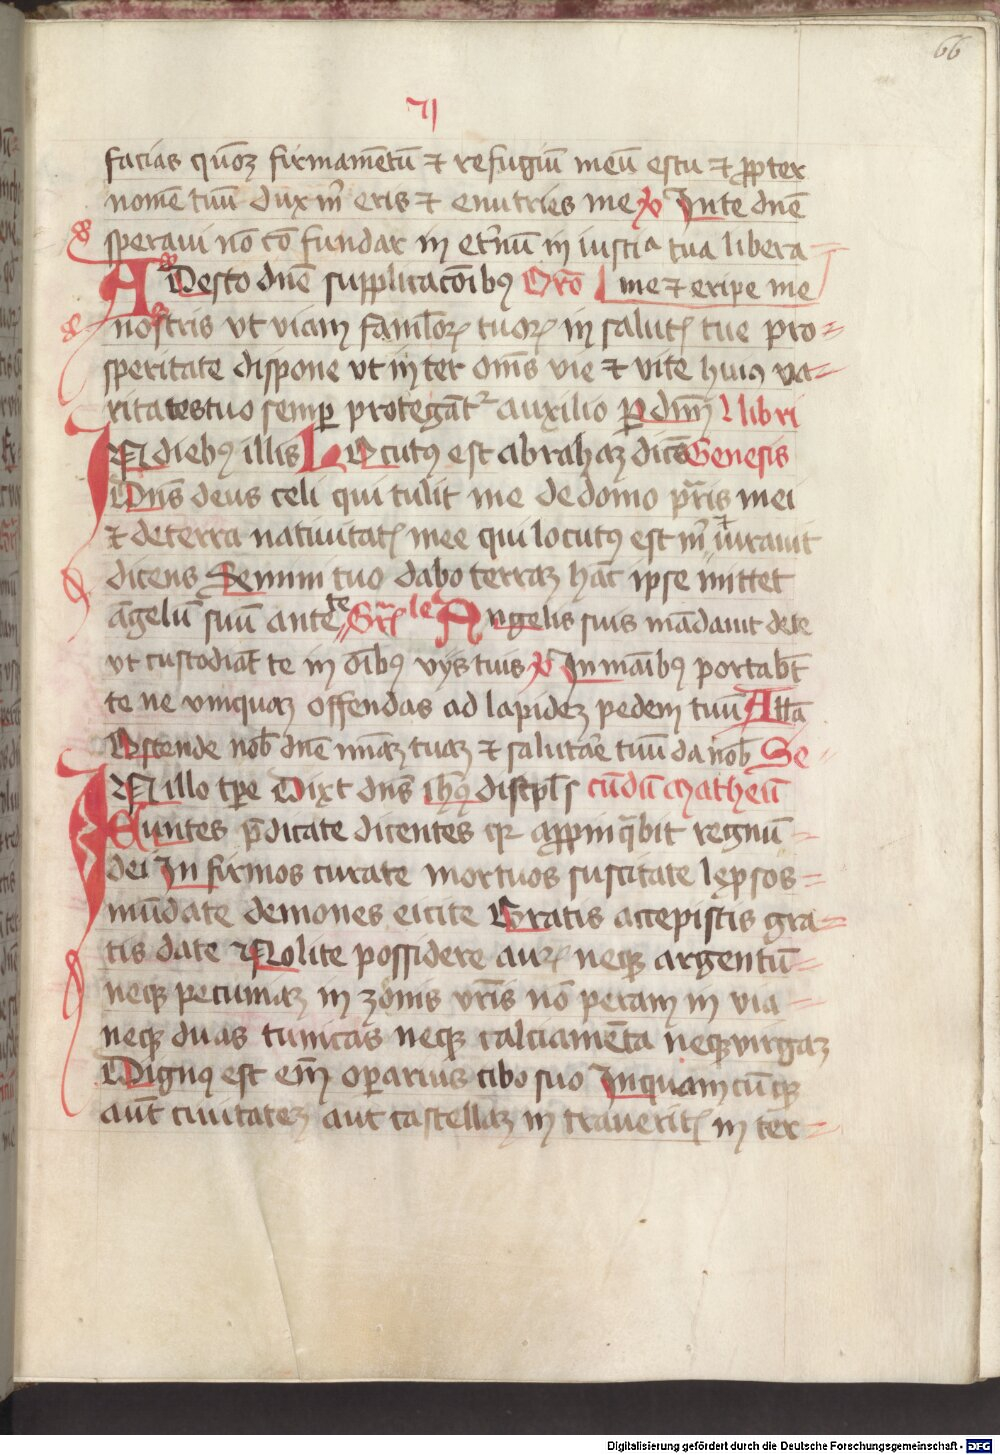 66
71
facias quoꝫ firmamētū ⁊ refugiū meū es tu ⁊ ꝓpter
nomē tuū dux m̄ eris ⁊ enutries me ℣ Jn te dn̄e
speraui nō cōfundar in et̄nū in iusticia tua libera
ADesto dn̄e supplicacōibꝰ Orō me ⁊ eripe me
nostris vt viam famloꝝ tuoꝝ in salutꝭ tue pro-
speritate dispone vt inter om̄s vie ⁊ vite huiꝰ va-
ritates tuo semꝑ protegāt᷑ auxilio ꝑ dm̄ L libri
JN diebꝰ illis LOcutꝰ est abrahaꝫ dicēs Genesis
Dn̄s deus celi qui tulit me de domo pr̄is mei
⁊ de terra natiuitatꝭ mee qui locutꝰ est m̄ ⁊ iurauit
dicens Semini tuo dabo terraꝫ hāc ipse mittet
āgelū suū ante te Gr̄ le Angelis suis mādauit de te
vt custodiāt te in oībꝰ vijs tuis ℣ Jn maībꝰ portabt̄
te ne vmquaꝫ offendas ad lapideꝫ pedem tuū Alla
Ostende nob̄ dn̄e mīaꝫ tuaꝫ ⁊ salutāe tuū da nob̄ Se-
JN illo tꝑe Dixt dn̄s ihꝰ discipl̄s cūdū matheū
Euntes p̄dicate dicentes qꝛ appinq̄bit regnū
dei Jnfirmos curate mortuos suscitate leprsos
mūdate demones eicite Gratis accepistis gra-
tis date Nolite possidere auꝝ neqꝫ argentū
neqꝫ pecuniaꝫ in zonis vr̄is nō peram in via
neqꝫ duas tunicas neqꝫ calciamēta neqꝫ virgaꝫ
Dignꝰ est em̄ oꝑarius cibo suo Jn quamcūqꝫ
aut̄ ciuitateꝫ aut castellaꝫ intraueritꝭ inter-
Digitalisierung gefördert durch die Deutsche Forschungsgemeinschaft - DFG